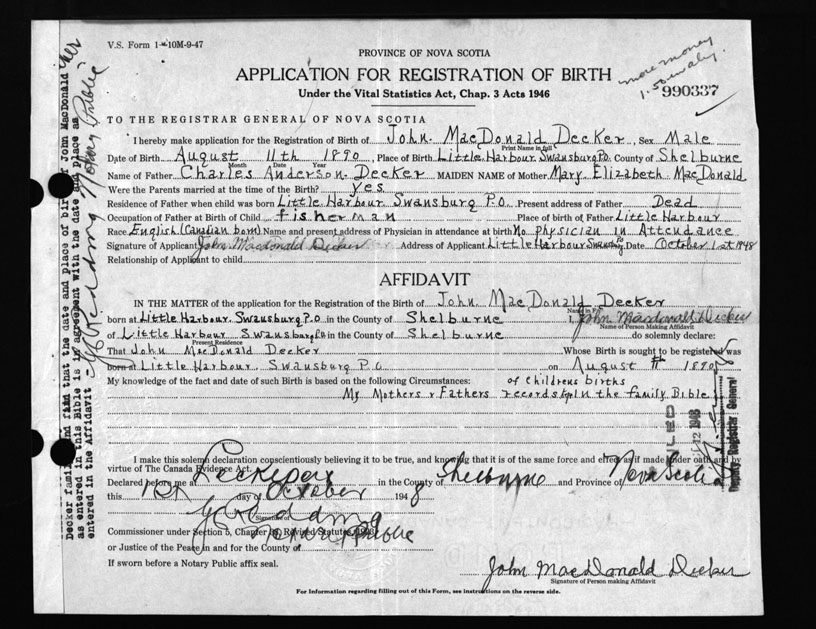 V.S. Form 1-10M-9-47
PROVINCE OF NOVA SCOTIA
APPLICATION FOR REGISTRATION OF BIRTH
Under the Vital Statistics Act, Chap. 3 Acts 1946
more money
990337
TO THE REGISTRAR GENERAL OF NOVA SCOTIA
I hereby make application for the Registration of Birth of John. MacDonald Decker, Sex Male
Print Name in full
Date of Birth August 11th 1890, Place of Birth Little Harbour Swansburg P.O. County of Shelburne
Month Date Year
Name of Father Charles Anderson. Decker MAIDEN NAME of Mother Mary Elizabeth MacDonald
Were the Parents married at the time of the Birth? yes
Residence of Father when child was born Little Harbour Swansburg P.O. Present address of Father Dead
Occupation of Father at Birth of Child fisherman Place of birth of Father Little Harbour
Race English (Canadian born) Name and present address of Physician in attendance at birth No physician in Attendance
Signature of Applicant John Macdonald Decker Address of Applicant Little Harbour Swansburg PO Date October 1st 1948
Relationship of Applicant to child
AFFIDAVIT
IN THE MATTER of the application for the Registration of the Birth of John. MacDonald Decker
Name in full
born at Little Harbour. Swansburg P.O in the County of Shelburne I, John Macdonald Decker
Name of Person Making Affidavit
of Little Harbour Swansburg P.O in the County of Shelburne do solemnly declare:
Present Residence
That John MacDonald Decker Whose Birth is sought to be registered was
born at Little Harbour. Swansburg P.O on August 11 1890
My knowledge of the fact and date of such Birth is based on the following Circumstances: of Childrens births
My Mothers & Fathers records kept in the family Bible
I make this solemn declaration conscientiously believing it to be true, and knowing that it is of the same force and effect as if made under oath and by
virtue of The Canada Evidence Act.
Declared before me at Lockeport in the County of Shelburne and Province of Nova Scotia
this 1st day of October 1948
Signature of
Notary Public
Commissioner under Section 5, Chapter Revised Statutes, 1923
or Justice of the Peace in and for the County of
If sworn before a Notary Public affix seal.
John MacDonald Decker
Signature of Person making Affidavit
For Information regarding filling out of this Form, see instructions on the reverse side.
Decker family and find that the date and place of birth of John MacDonald
as entered in this Bible is in agreement with the date and place as
entered in the Affidavit -
Notary Public
FILED
12 1948
Deputy Registrar General